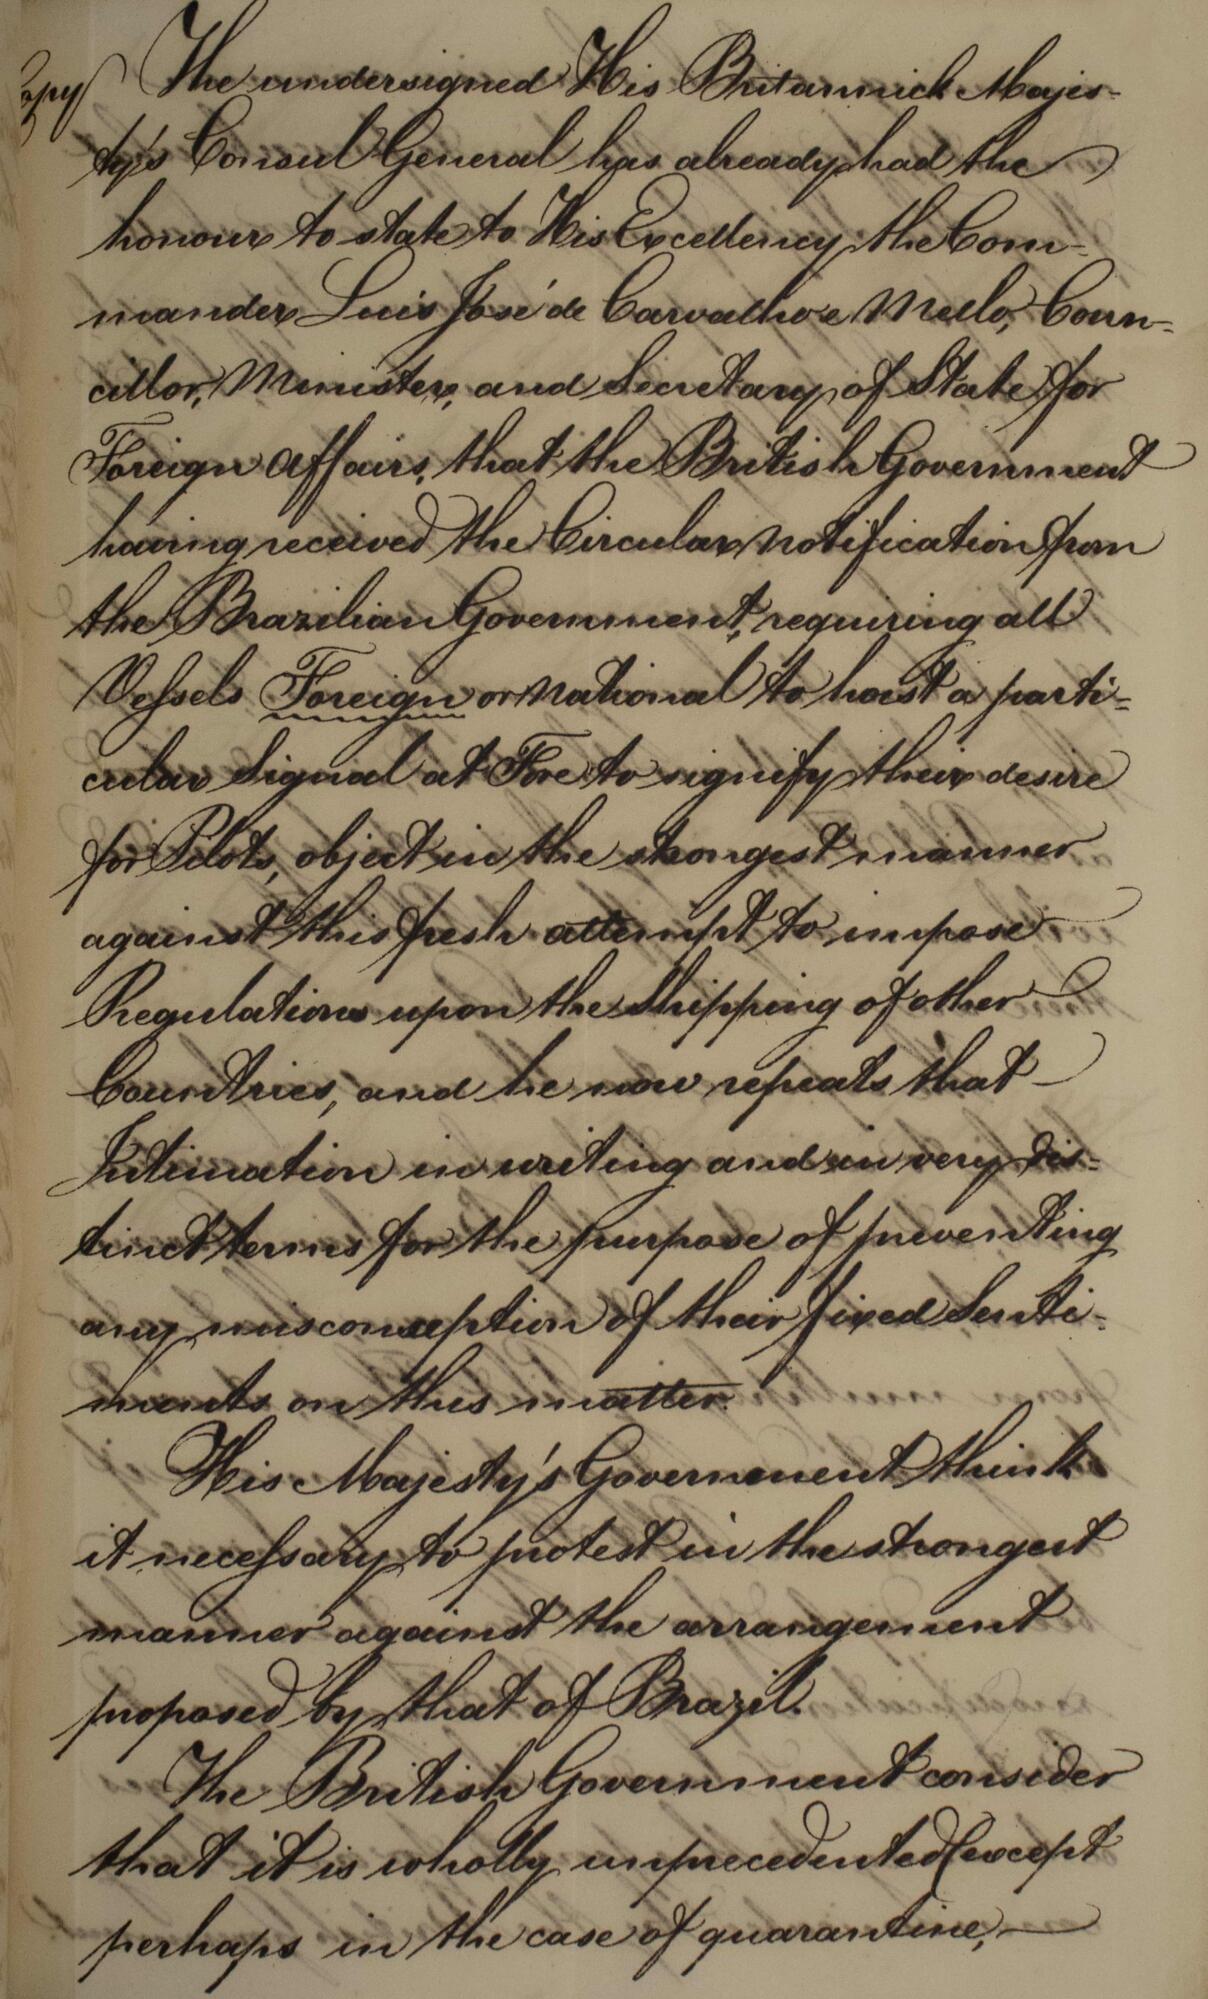 Copy
The undersigned His Britannick Majes-
ty's Consul General has already had the
honour to state to His Excellency the Com-
mander Luis José de Carvalho e Mello, Coun-
cillor, Minister, and Secretary of State for
Foreign Affairs, that the British Government
having received the Circular Notification from
the Brazilian Government, requiring all
Vessels Foreign or National to hoist a parti-
cular Signal at Fore to signify their desire
for Pilots, object in the strongest manner
against this fresh attempt to impose
Regulations upon the Shipping of other
Countries, and he now repeats that
Intimation in writing and in very dis-
tinct terms for the purpose of preventing
any misconception of their fixed Senti-
ments on this matter.
His Majesty's Government think
it necessary to protest in the strongest
manner against the arrangement
proposed by that of Brazil.
The British Government consider
that it is wholly unprecedented (except
perhaps in the case of quarantine,